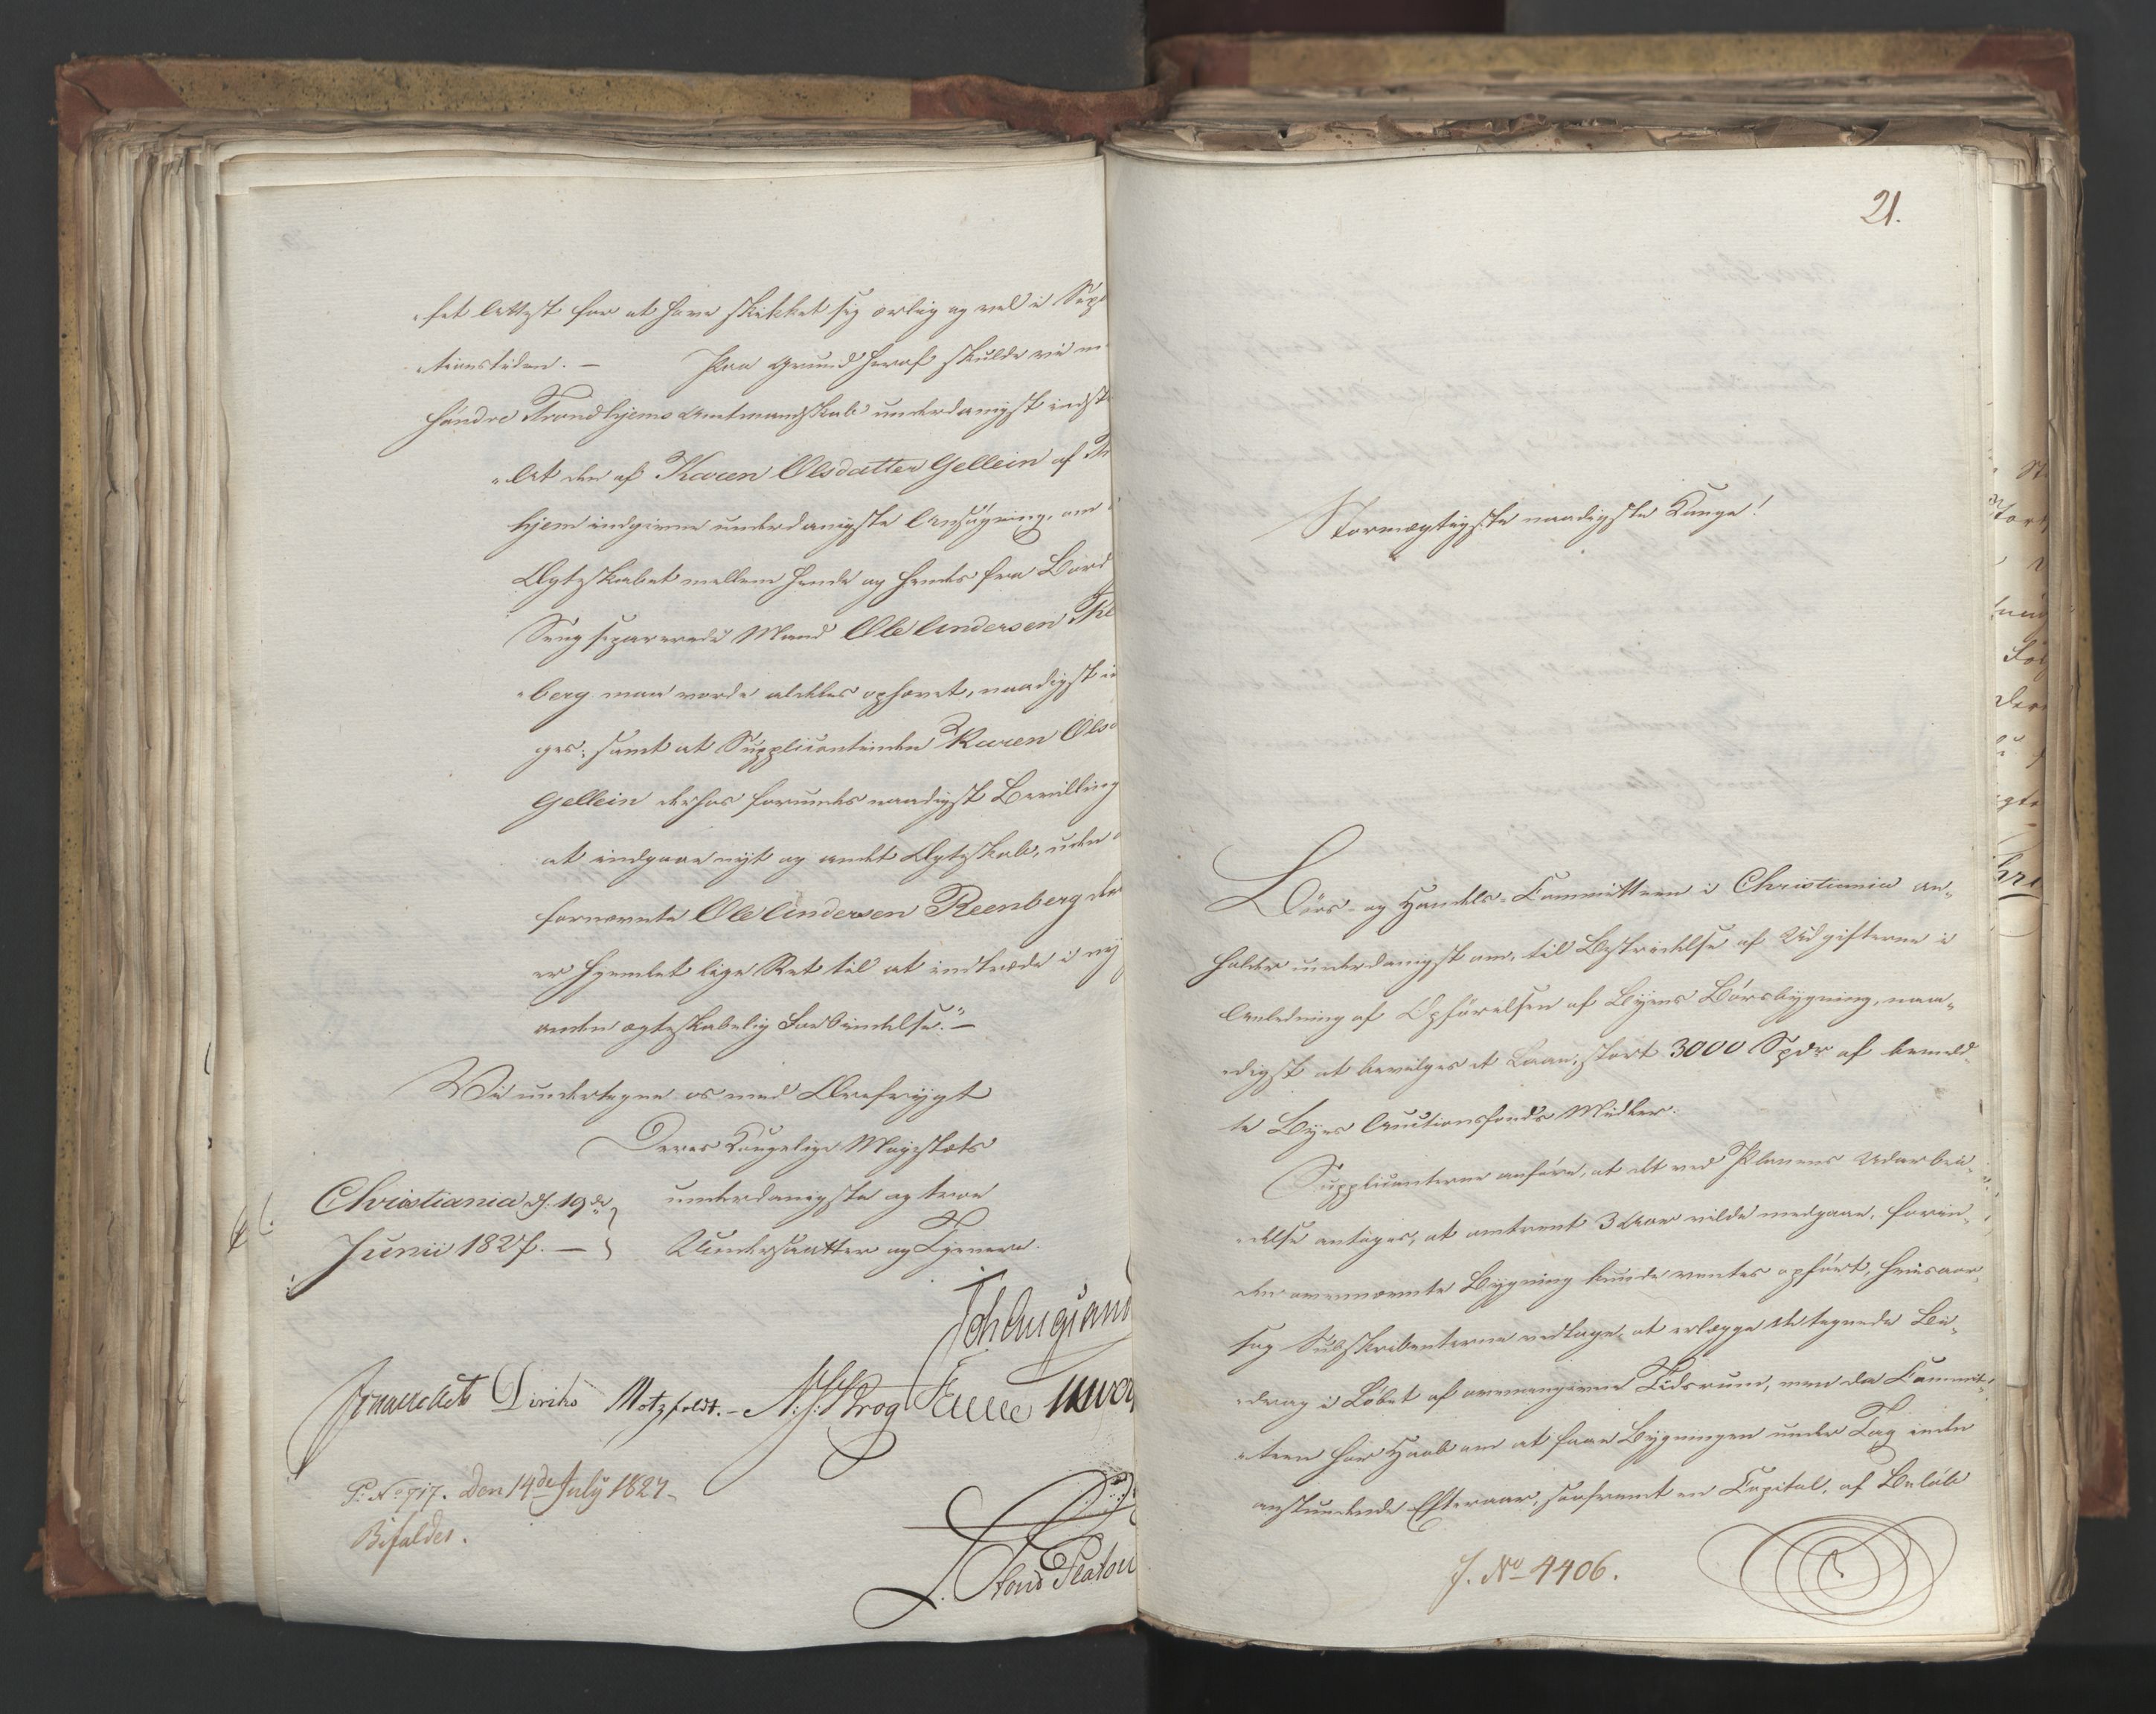 set Attest for at have skikket sig ærlig og vel i Sepa
rationstiden. — Paa Grund heraf skulde vi
Søndre Trondhjems Amtmandskab underdanigst indst
"At den af Karen Olsdatter Gellein af
hjem indgivne underdanigste Ansøgning, om
Ægteskabet mellem hende og hendes fra Bord
Seng separerede Mand Ole Andersen
berg maa vorde aldeles ophævet, naadigst
ges; samt at Supplicantinden Karen Olsd
Gellein derhos forundes naadigst Bevilling
at indgaae nyt og andet Ægteskab, uden
fornævnte Ole Andersen Reenberg
er hjemlet lige Ret til at indtræde i ny
anden ægteskabelig Forbindelse." —
Vi undertegne os med Ærefrygt
Deres Kongelige Majestæts
Christiania d. 19de underdanigste og troe
Junii 1827. — Undersaatter og Tjenere.
Diriks Motzfeldt. - N: J: Krog
P. No 717. Den 14de July 1827
Bifaldes.
21.
Stormægtigste naadigste Konge!
Børs- og Handels-Committeen i Christiania an-
holder underdanigst om, til Bestridelse af Udgifterne i
Anledning af Opførelsen af Byens Børsbygning, naa-
digst at bevilges et Laan, stort 3000 Spdr af bemeld-
te Byes Auctionsfonds Midler.
Supplicanterne anføre, at det ved Planens Udarbei-
delse antages, at omtrent 3 Aar vilde medgaae, forin-
den ommeldte Bygning kunde ventes opført, hvisaar-
sag Subskribenterne vedtage, at erlægge de tegnede Bi-
drag i Løbet af ovenangivne Tidsrum, men da Commit-
teen har Haab om at faae Bygningen under Tag inden
anstundende Efteraar, saafremt en Capital, af Beløb
J. No 4406.